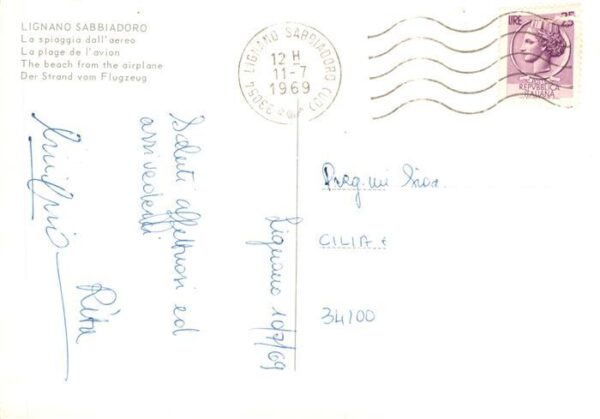 LIGNANO SABBIADORO
La spiaggia dall'aereo
La plage de l'avion
The beach from the airplane
Der Strand vom Flugzeug
33054 LIGNANO SABBIADORO (UD)
12 H
11-7
1969
LIRE 25
REPUBBLICA
ITALIANA
Lignano 10/7/69
Saluti affettuosi ed
arrivederci
Rita
Preg.mi
CILIA
34100